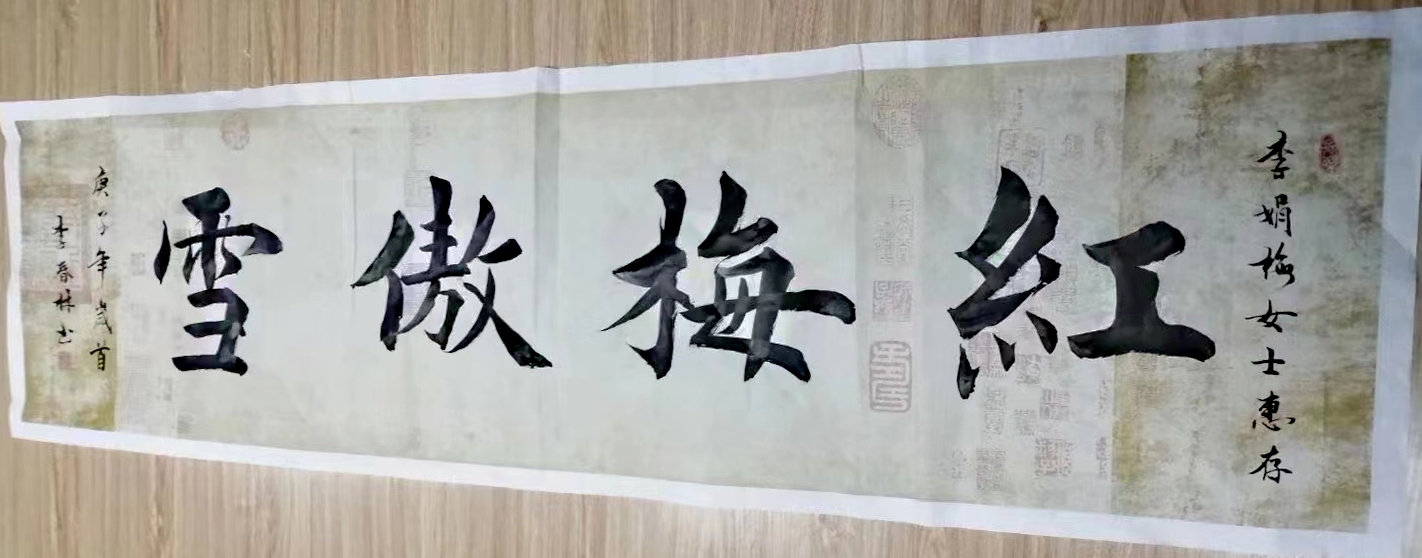 李娟梅女士惠存
紅梅傲雪
庚子年歲首
李春林书